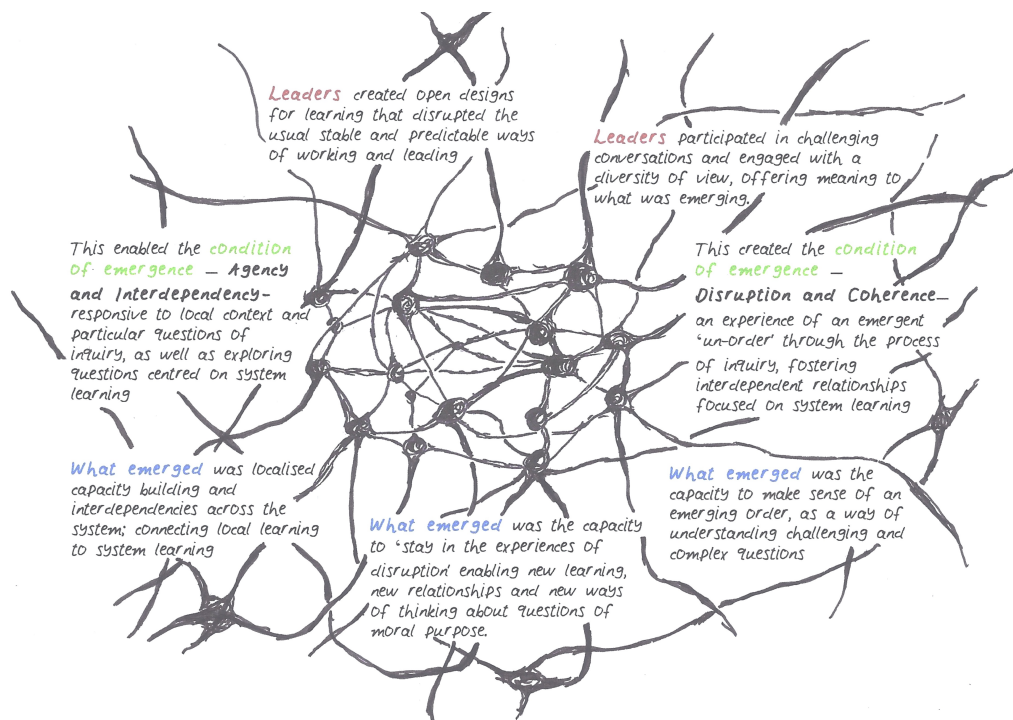 Leaders created open designs
for learning that disrupted the
usual stable and predictable ways
of working and leading
Leaders participated in challenging
conversations and engaged with a
diversity of view, offering meaning to
what was emerging.
This enabled the condition
of emergence – Agency
and Interdependency–
responsive to local context and
particular questions of
inquiry, as well as exploring
questions centred on system
learning
This created the condition
of emergence –
Disruption and Coherence–
an experience of an emergent
'un-order' through the process
of inquiry, fostering
interdependent relationships
focused on system learning
What emerged was localised
capacity building and
interdependencies across the
system; connecting local learning
to system learning
What emerged was the capacity
to 'stay in the experiences of
disruption' enabling new learning,
new relationships and new ways
of thinking about questions of
moral purpose.
What emerged was the
capacity to make sense of an
emerging order, as a way of
understanding challenging and
complex questions